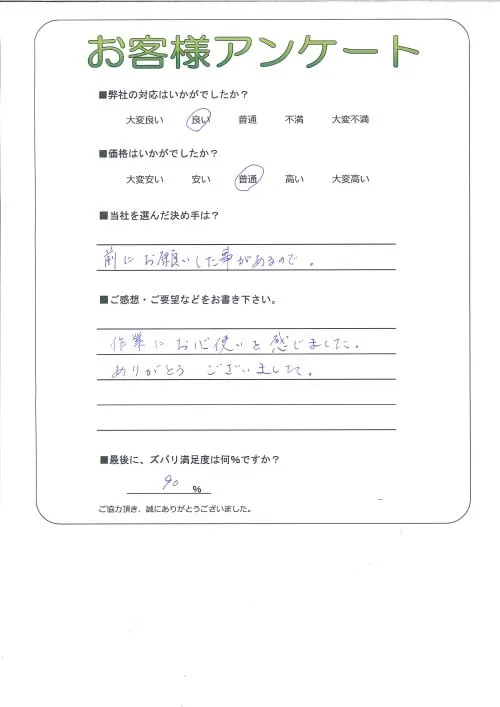 お客様アンケート
■弊社の対応はいかがでしたか？
大変良い 良い 普通 不満 大変不満
■価格はいかがでしたか？
大変安い 安い 普通 高い 大変高い
■当社を選んだ決め手は？
前にお願いした事があるので。
■ご感想・ご要望などをお書き下さい。
作業にお心使いと感じました。
ありがとう ございました。
■最後に、ズバリ満足度は何%ですか？
90 %
ご協力頂き、誠にありがとうございました。